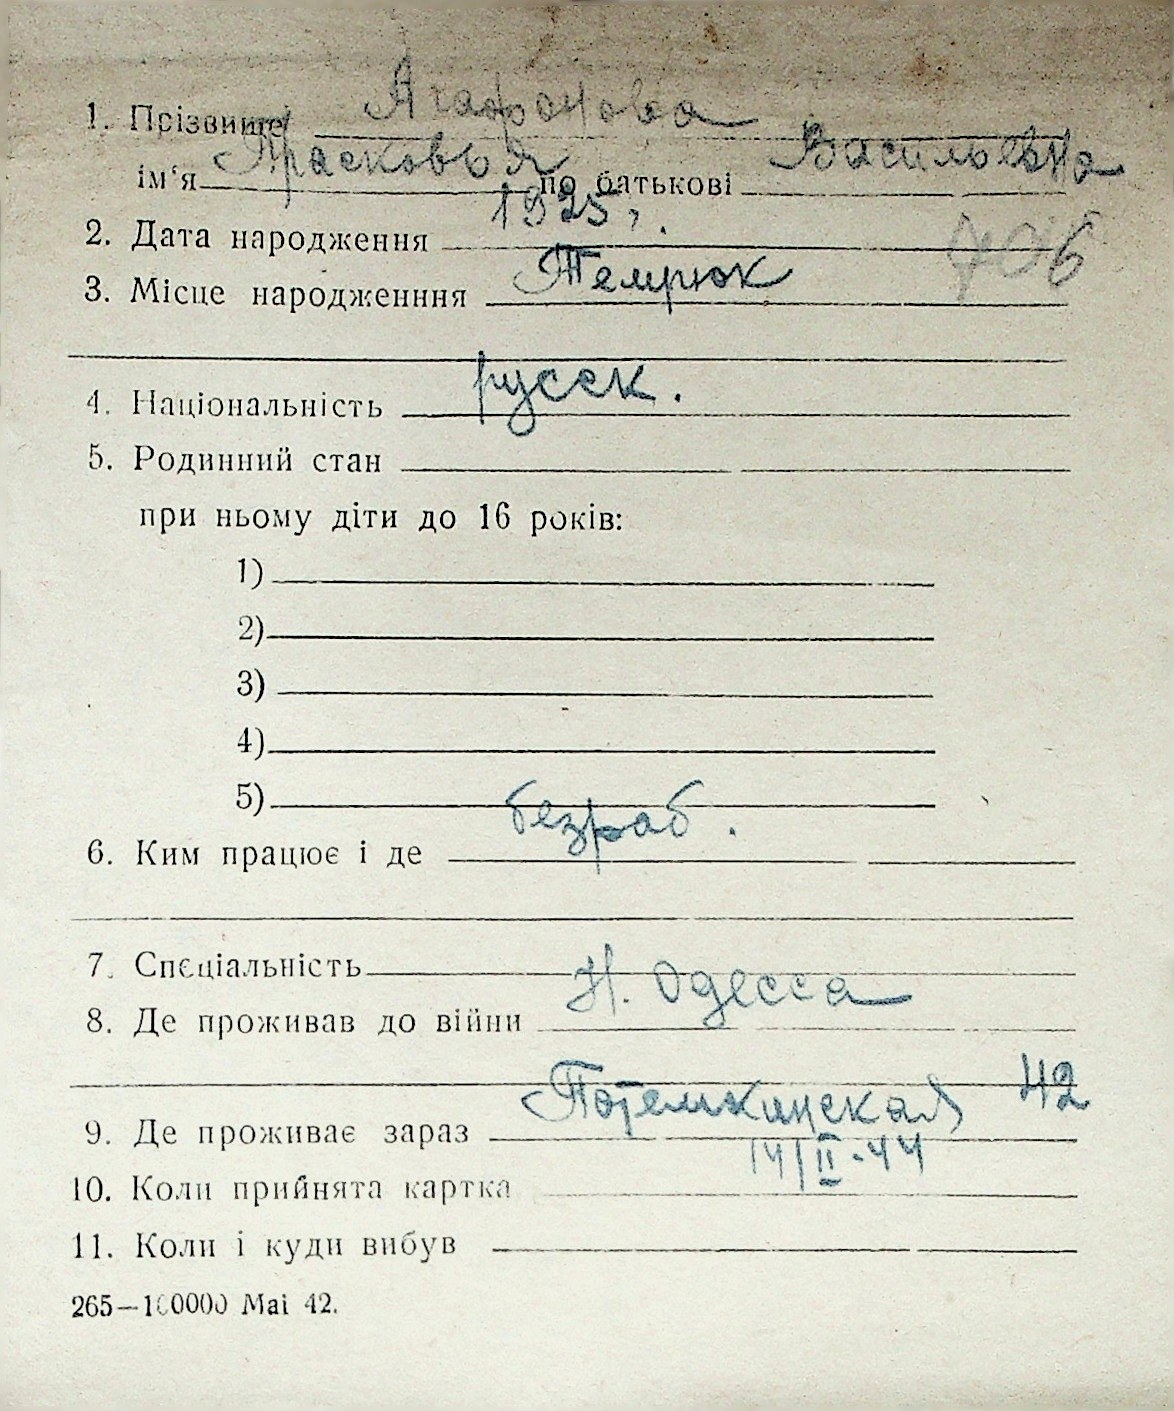 1. Прізвище Агафонова
ім'я Прасковья по батькові Васильевна
2. Дата народження 1925,.
706
3. Місце народженння Темрюк
4. Національність русск.
5. Родинний стан
при ньому діти до 16 років:
1)
2)
3)
4)
5)
6. Ким працює і де безраб.
7. Спєціальність
8. Де проживав до війни Н. Одесса
9. Де проживає зараз Потемкинская 42
10. Коли прийнята картка 14/II-44
11. Коли і куди вибув
265—100000 Mai 42.